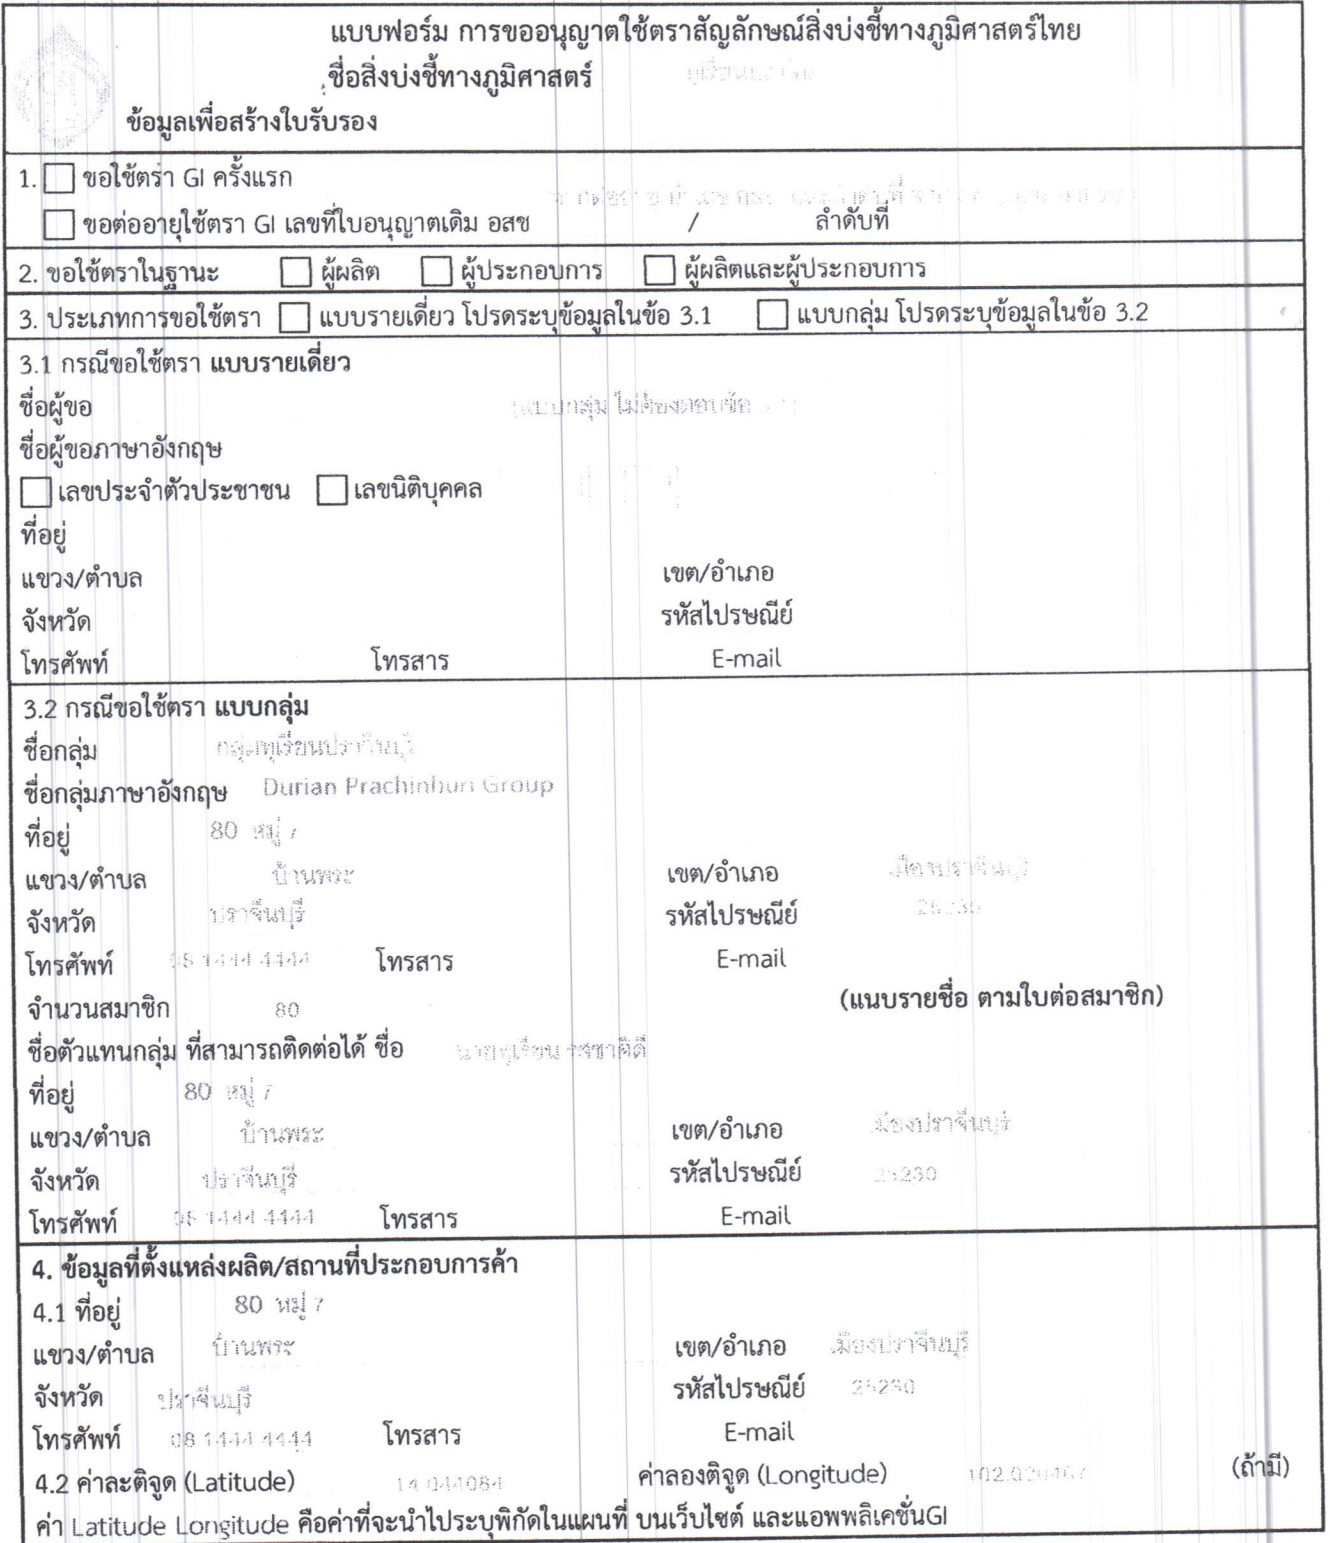 แบบฟอร์ม การขออนุญาตใช้ตราสัญลักษณ์สิ่งบ่งชี้ทางภูมิศาสตร์ไทย
ชื่อสิ่งบ่งชี้ทางภูมิศาสตร์
ข้อมูลเพื่อสร้างใบรับรอง
1. ขอใช้ตรา GI ครั้งแรก
ขอต่ออายุใช้ตรา GI เลขที่ใบอนุญาตเดิม อสช / ลำดับที่
2. ขอใช้ตราในฐานะ ผู้ผลิต ผู้ประกอบการ ผู้ผลิตและผู้ประกอบการ
3. ประเภทการขอใช้ตรา แบบรายเดี่ยว โปรดระบุข้อมูลในข้อ 3.1 แบบกลุ่ม โปรดระบุข้อมูลในข้อ 3.2
3.1 กรณีขอใช้ตรา แบบรายเดี่ยว
ชื่อผู้ขอ แบบกลุ่ม ไม่ต้องตอบข้อ
ชื่อผู้ขอภาษาอังกฤษ
เลขประจำตัวประชาชน เลขนิติบุคคล
ที่อยู่
แขวง/ตำบล เขต/อำเภอ
จังหวัด รหัสไปรษณีย์
โทรศัพท์ โทรสาร E-mail
3.2 กรณีขอใช้ตรา แบบกลุ่ม
ชื่อกลุ่ม กลุ่มทุเรียนปราจีนบุรี
ชื่อกลุ่มภาษาอังกฤษ Durian Prachinburi Group
ที่อยู่ 80 หมู่ 7
แขวง/ตำบล บ้านพระ เขต/อำเภอ เมืองปราจีนบุรี
จังหวัด ปราจีนบุรี รหัสไปรษณีย์
โทรศัพท์ 08 1444 4444 โทรสาร E-mail
จำนวนสมาชิก 80 (แนบรายชื่อ ตามใบต่อสมาชิก)
ชื่อตัวแทนกลุ่ม ที่สามารถติดต่อได้ ชื่อ นายทุเรียน รสชาติดี
ที่อยู่ 80 หมู่ 7
แขวง/ตำบล บ้านพระ เขต/อำเภอ เมืองปราจีนบุรี
จังหวัด ปราจีนบุรี รหัสไปรษณีย์ 25230
โทรศัพท์ 08 1444 4444 โทรสาร E-mail
4. ข้อมูลที่ตั้งแหล่งผลิต/สถานที่ประกอบการค้า
4.1 ที่อยู่ 80 หมู่ 7
แขวง/ตำบล บ้านพระ เขต/อำเภอ เมืองปราจีนบุรี
จังหวัด ปราจีนบุรี รหัสไปรษณีย์ 25230
โทรศัพท์ 08 1444 4444 โทรสาร E-mail
4.2 ค่าละติจูด (Latitude) 14.044084 ค่าลองติจูด (Longitude) (ถ้ามี)
ค่า Latitude Longitude คือค่าที่จะนำไประบุพิกัดในแผนที่ บนเว็บไซต์ และแอพพลิเคชั่นGI